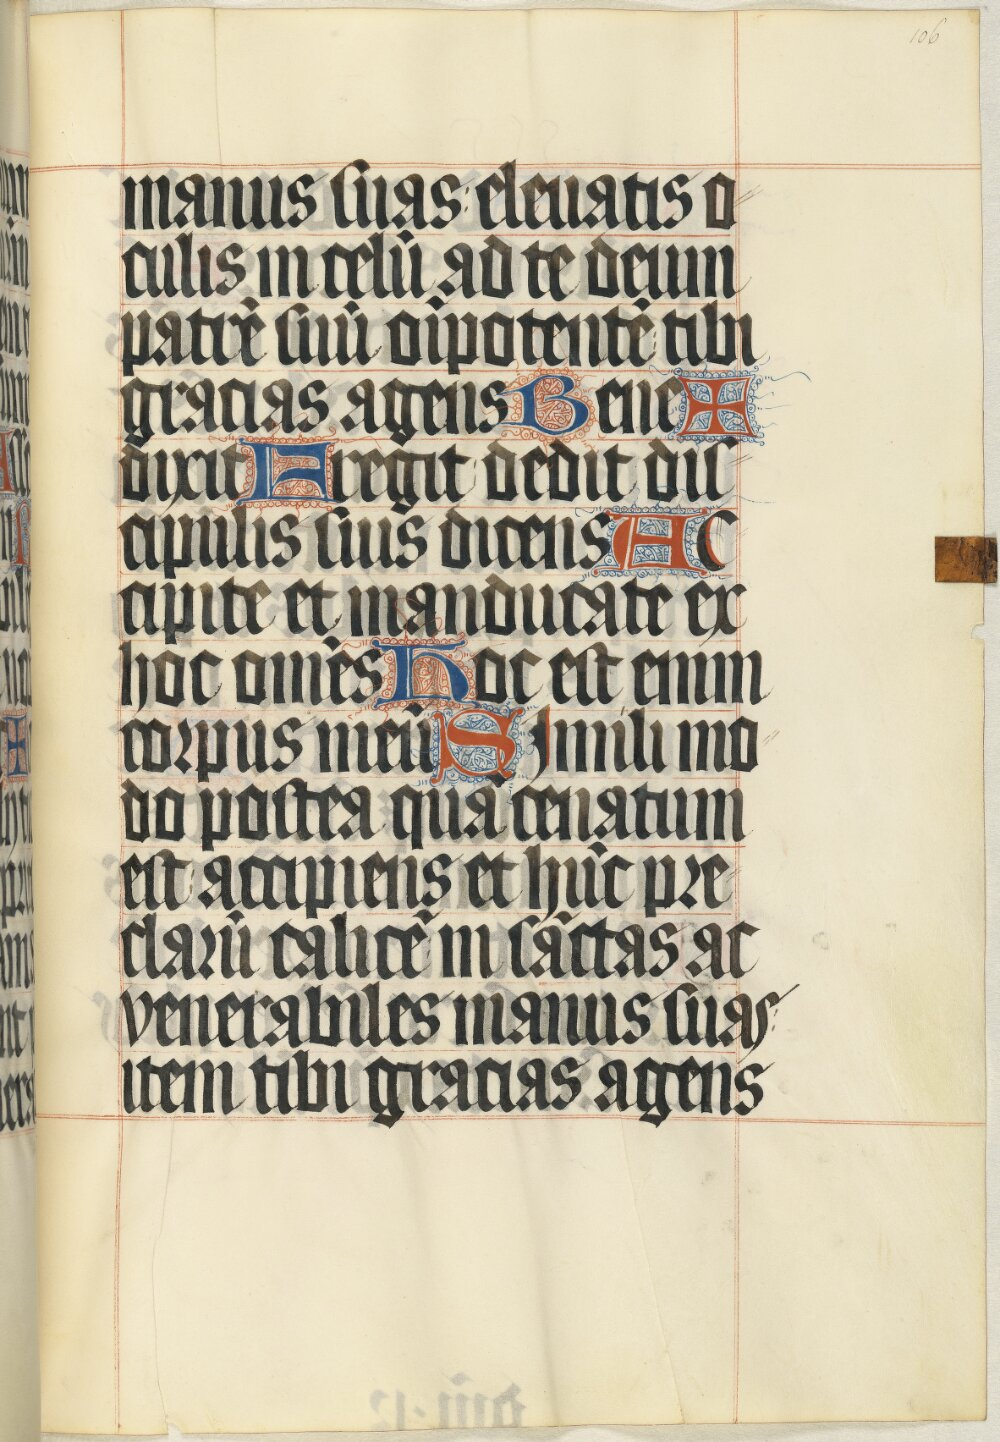 106
manus suas: eleuatis o
culis in celū ad te deum
patrē suū oīpotentē tibi
gracias agens Bene I
dixit Fregit dedit dis
cipulis suis dicens Ac
cipite et manducate ex
hoc omēs Hoc est enim
corpus meū Simili mo
do postea quā cenatum
est accipiens et hūc pre
clarū calicē in sāctas ac
venerabiles manus suas:
item tibi gracias agens